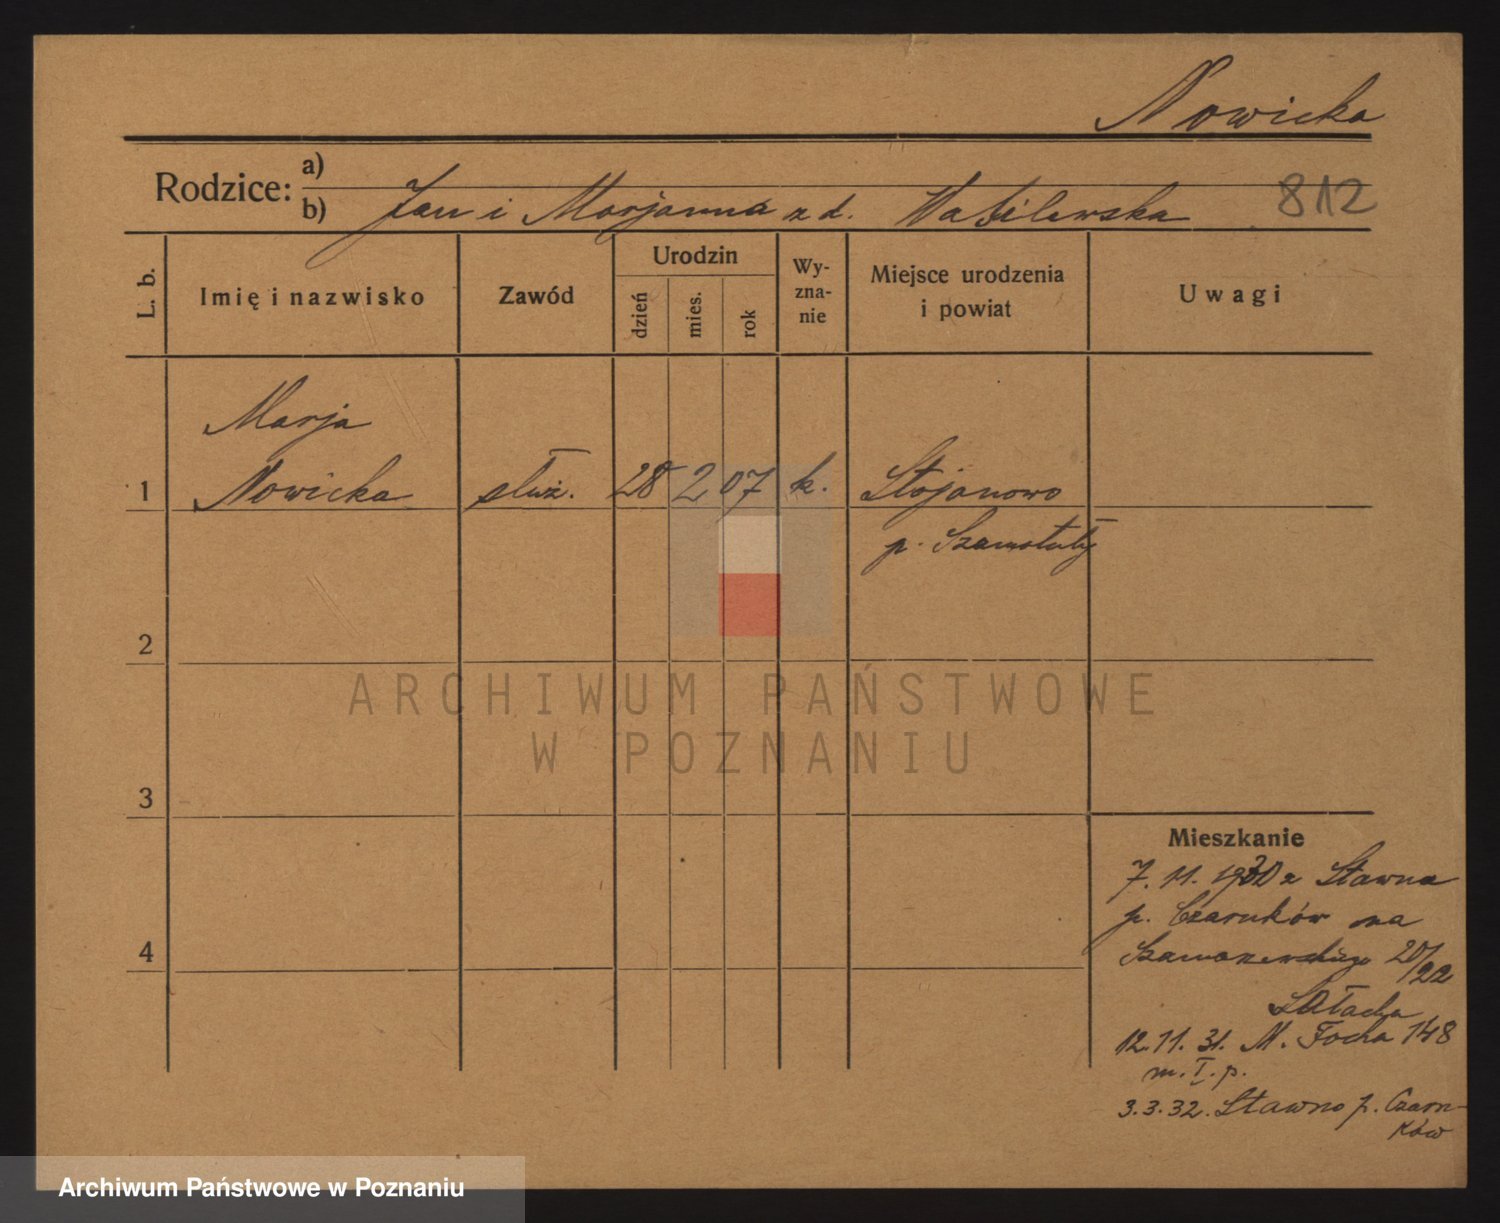 Nowicka
Rodzice: a)
b) Jan i Marjanna z d. Wasilewska 812
L. b.
Imię i nazwisko
Zawód
Urodzin
dzień
mies.
rok
Wy-
zna-
nie
Miejsce urodzenia
i powiat
Uwagi
Marja
1 Nowicka służ. 28 2 07 k. Stojanowo
p. Szamotuły
2
ARCHIWUM PAŃSTWOWE
W POZNANIU
3
Mieszkanie
7. 11. 1930 z Stawna
p. Czarnków na
4 20/22
12. 11. 31. M. Focha 148
m. I. p.
3. 3. 32. Stawno p. Czarn-
ków
Archiwum Państwowe w Poznaniu